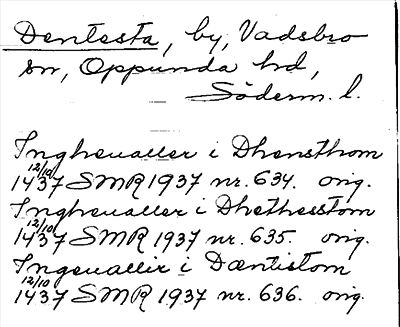 Dentesta, by, Vadsbro
sn, Oppunda hd,
Söderm. l.
Ingheualler i Dhensthom
12/10
1437 SMR 1937 nr. 634. orig.
Ingheualler i Dhethesstom
12/10
1437 SMR 1937 nr. 635. orig.
Ingeuallir i Dæntistom
12/10
1437 SMR 1937 nr. 636. orig.